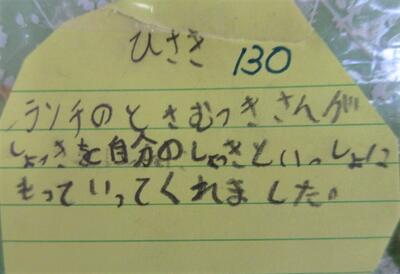 ひさき 130
ランチのときむつきさんが
しょっきを自分のしょっきといっしょに
もっていってくれました。